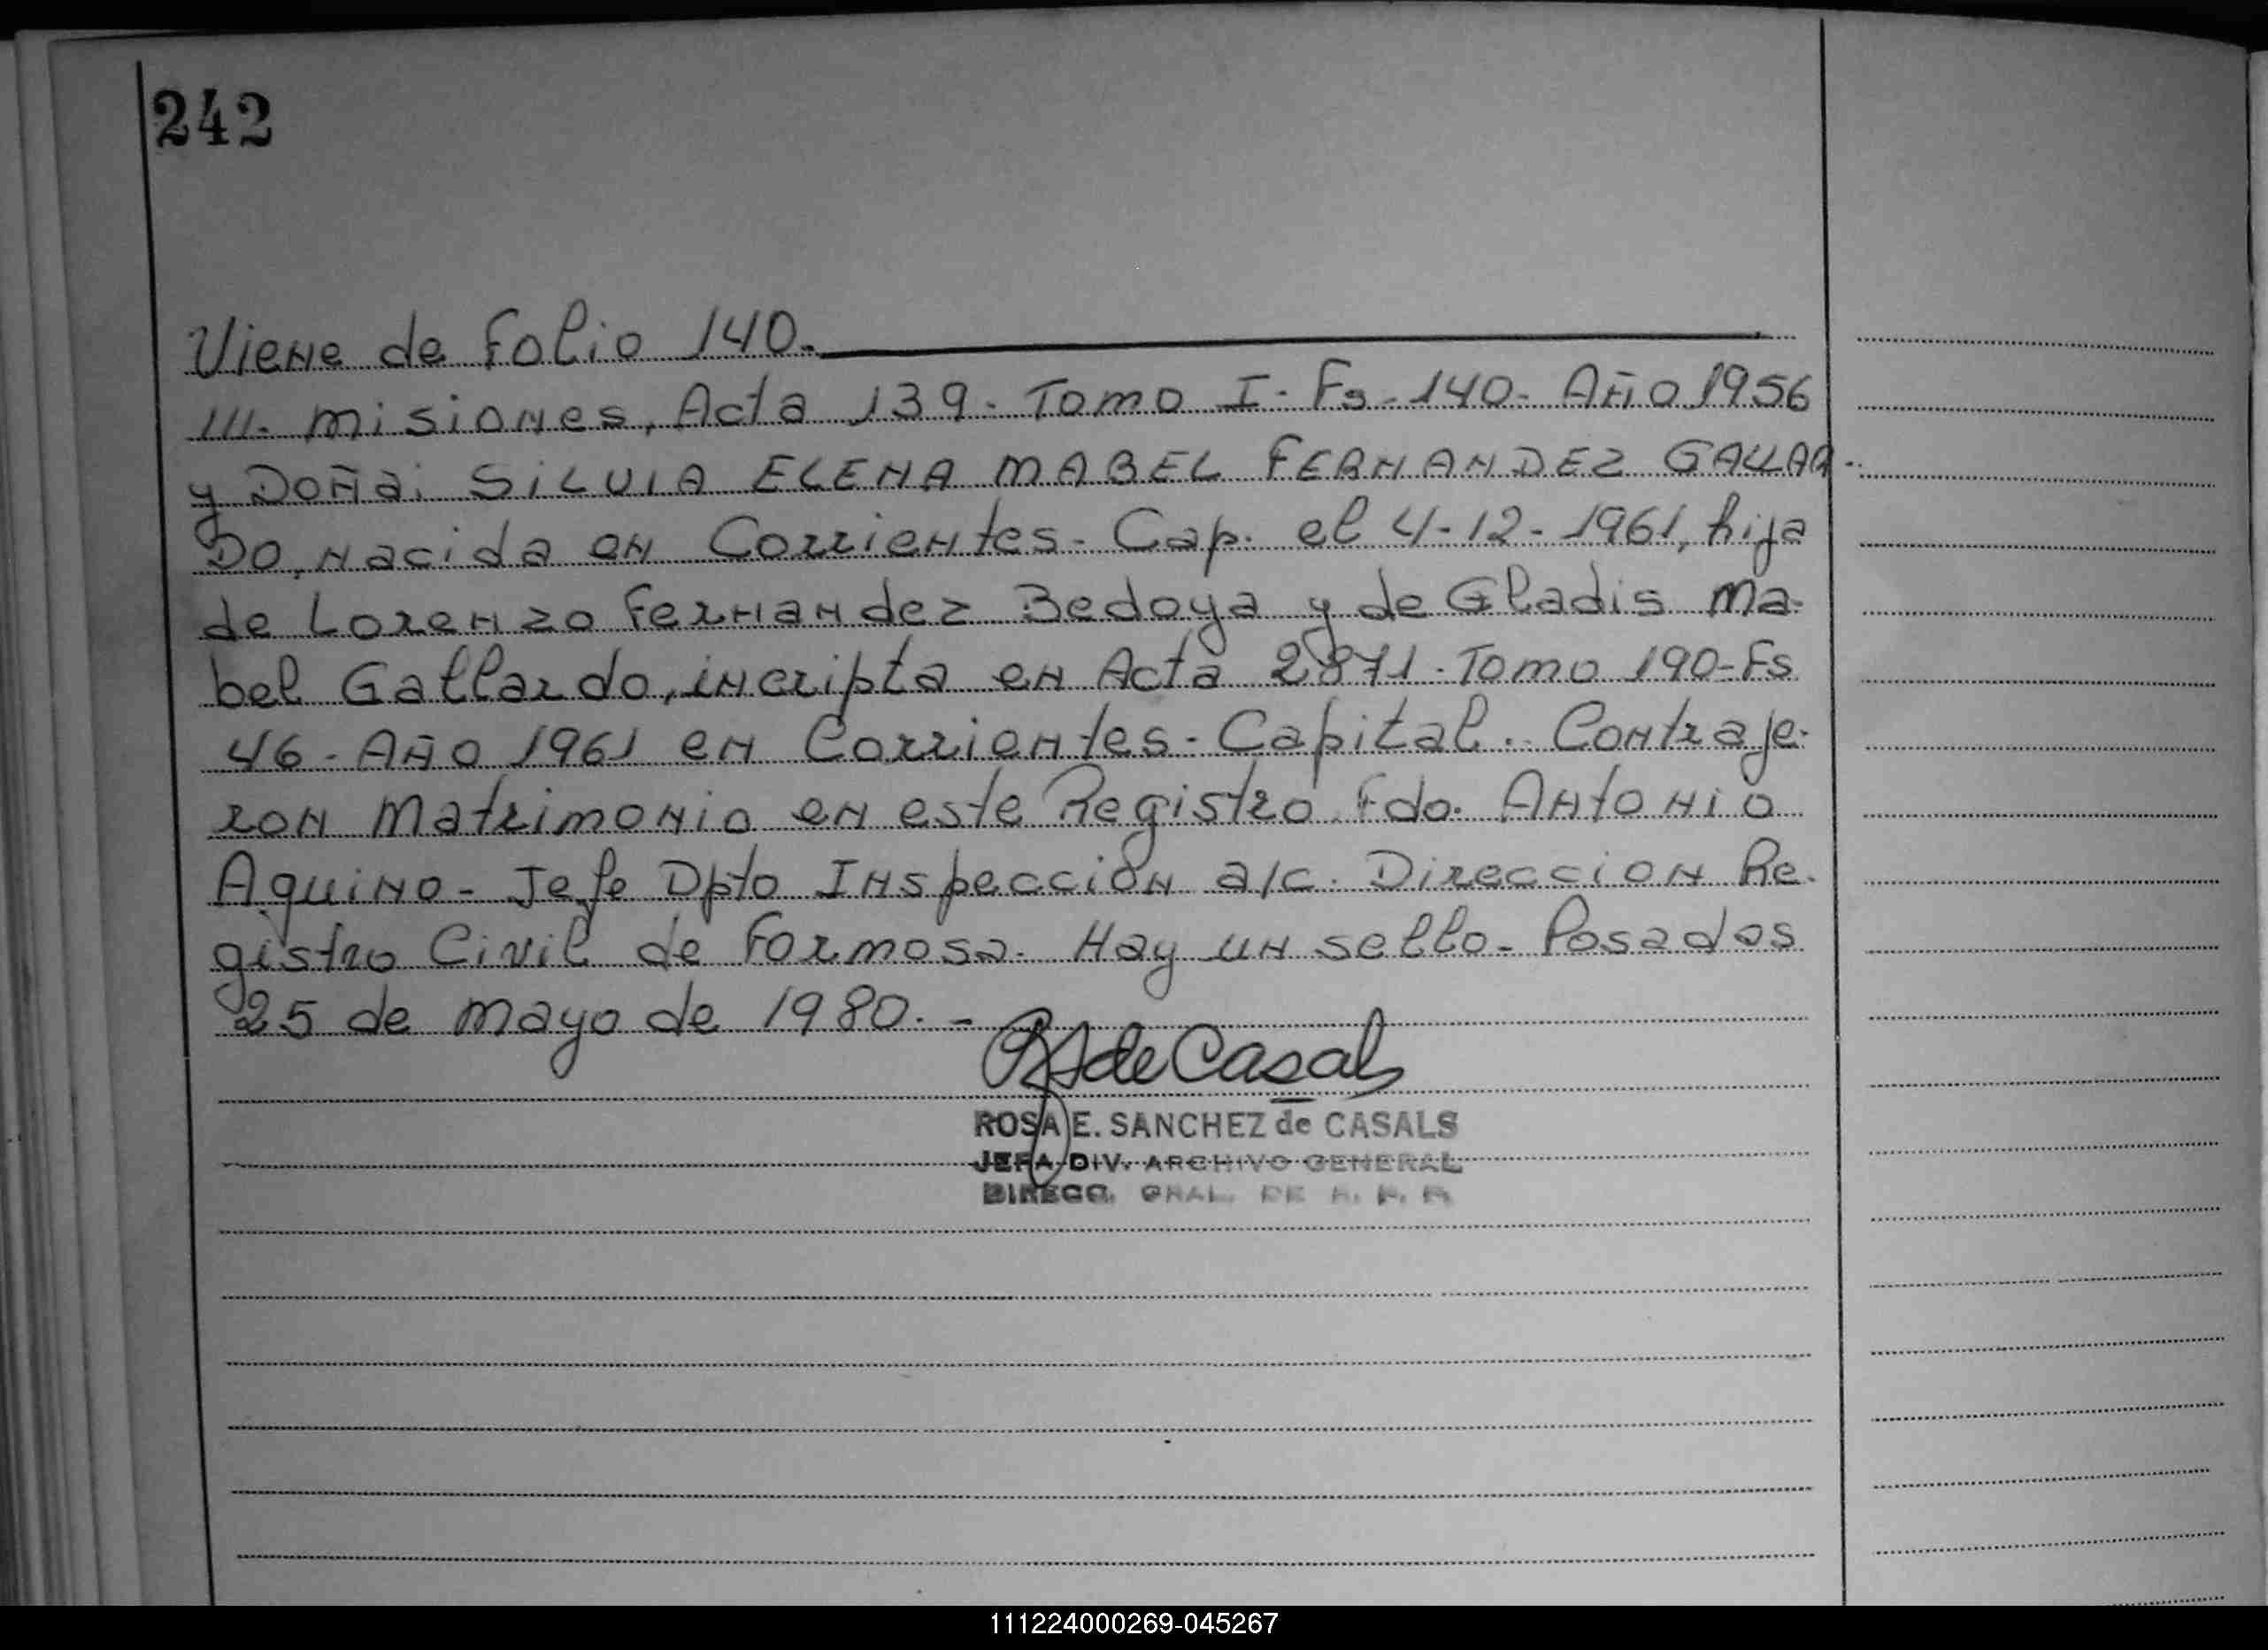 242
Viene de Folio 140.
///. misiones, Acta 139. Tomo I. Fs. 140. Año 1956
y Doña: SILVIA ELENA MABEL FERNANDEZ GALLAR-
DO, nacida en Corrientes. Cap. el 4-12-1961, hija
de Lorenzo Fernandez Bedoya y de Gladis Ma-
bel Gallardo, incripta en Acta 2871. Tomo 190-Fs
46. Año 1961 en Corrientes-Capital.. Contraje-
ron Matrimonio en este Registro. Fdo. Antonio
Aquino - Jefe Dpto Inspección a/c. Direccion Re-
gistro Civil de Formosa. Hay un sello. Posadas
25 de mayo de 1980.-
de Casals
ROSA E. SANCHEZ de CASALS
JEFA DIV. ARCHIVO GENERAL
DIRECC. GRAL. DE R. P. P.
111224000269-045267